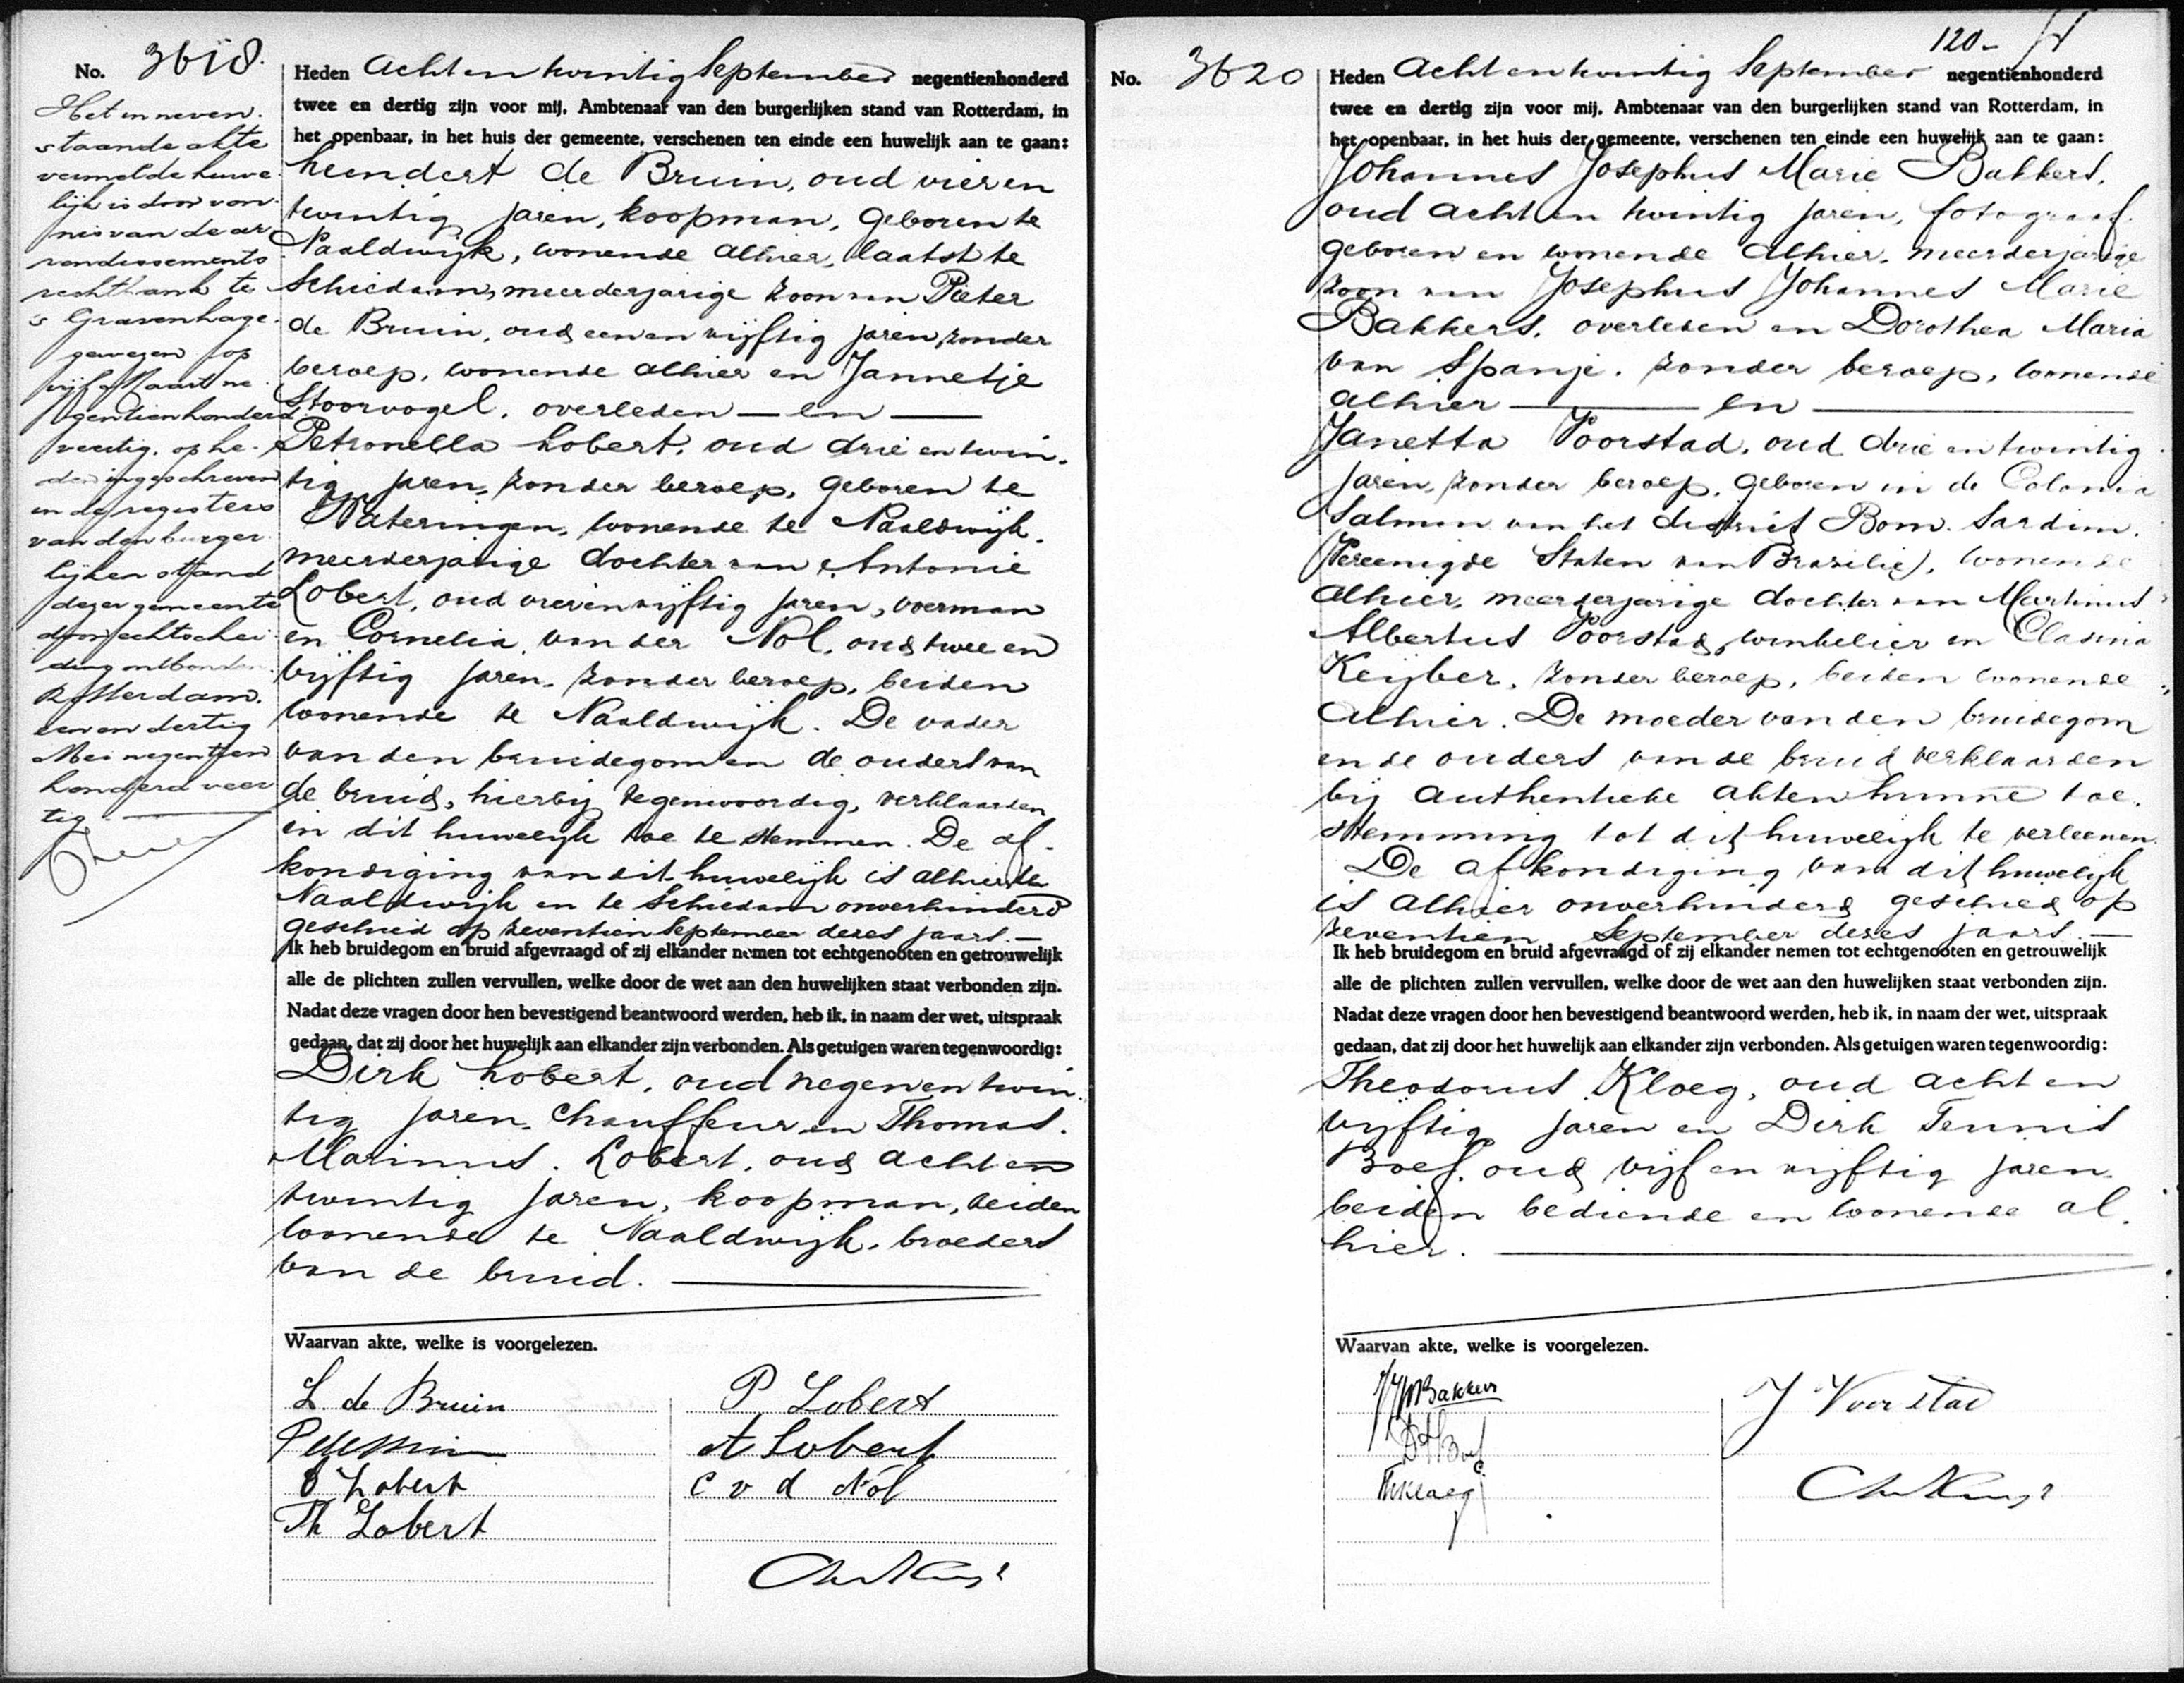 No. 3618.
Heden Acht en twintig September negentienhonderd
twee en dertig zijn voor mij, Ambtenaar van den burgerlijken stand van Rotterdam, in
het openbaar, in het huis der gemeente, verschenen ten einde een huwelijk aan te gaan:
Leendert de Bruin, oud vier en
twintig jaren, koopman, geboren te
Naaldwijk, wonende alhier, laatst te
Schiedam, meerderjarige zoon van Pieter
de Bruin, oud een en vijftig jaren, zonder
beroep, wonende alhier en Jannetje
Stoorvogel, overleden — en —
Petronella Lobert, oud drie en twin-
tig jaren, zonder beroep, geboren te
Wateringen, wonende te Naaldwijk.
meerderjarige dochter van Antonie
Lobert, oud vier en vijftig jaren, voerman
en Cornelia van der Nol, oud twee en
vijftig jaren, zonder beroep, beiden
wonende te Naaldwijk. De vader
van den bruidegom en de ouders van
de bruid, hierbij tegenwoordig, verklaarden
in dit huwelijk toe te stemmen. De af-
kondiging van dit huwelijk is alhier te
Naaldwijk en te Schiedam onverhinderd
geschied op zeventien September dezes jaars. —
Ik heb bruidegom en bruid afgevraagd of zij elkander nemen tot echtgenooten en getrouwelijk
alle de plichten zullen vervullen, welke door de wet aan den huwelijken staat verbonden zijn.
Nadat deze vragen door hen bevestigend beantwoord werden, heb ik, in naam der wet, uitspraak
gedaan, dat zij door het huwelijk aan elkander zijn verbonden. Als getuigen waren tegenwoordig:
Dirk Lobert, oud negen en twin-
tig jaren, chauffeur en Thomas
Marinus Lobert, oud acht en
twintig jaren, koopman, beiden
wonende te Naaldwijk, broeders
van de bruid.
Het in neven-
staande akte
vermelde huwe-
lijk is door von-
nis van de ar-
rondissements
rechtbank te
's Gravenhage
gewezen op
vijf Maart ne-
gentienhonderd
veertig, op he-
den ingeschreven
in de registers
van den burger-
lijken stand
dezer gemeente
door echtschei-
ding ontbonden.
Rotterdam,
een en dertig
Mei negentien
honderd veer
tig. —
Waarvan akte, welke is voorgelezen.
L. de Bruin
P Lobert
A Lobert
Lobert
c v d Nol
Th Lobert
120-
No. 3620
Heden Acht en twintig September negentienhonderd
twee en dertig zijn voor mij, Ambtenaar van den burgerlijken stand van Rotterdam, in
het openbaar, in het huis der gemeente, verschenen ten einde een huwelijk aan te gaan:
Johannes Josephus Marie Bakkers,
oud acht en twintig jaren, fotograaf.
geboren en wonende alhier, meerderjarige
zoon van Josephus Johannes Marie
Bakkers, overleden en Dorothea Maria
van Spanje, zonder beroep, wonende
alhier — en —
Janetta Voorstad, oud drie en twintig
jaren, zonder beroep, geboren in de Colonia
Salmon van het district Bom Jardim.
(Vereenigde Staten van Brazilië), wonende
alhier, meerderjarige dochter van Martinus
Albertus Voorstad, winkelier en Clasina
Keijber, zonder beroep, beiden wonende
alhier. De moeder van den bruidegom
en de ouders van de bruid verklaarden
bij authentieke akten hunne toe-
stemming tot dit huwelijk te verleenen.
De afkondiging van dit huwelijk
is alhier onverhinderd geschied op
zeventien September dezes jaars. —
Ik heb bruidegom en bruid afgevraagd of zij elkander nemen tot echtgenooten en getrouwelijk
alle de plichten zullen vervullen, welke door de wet aan den huwelijken staat verbonden zijn.
Nadat deze vragen door hen bevestigend beantwoord werden, heb ik, in naam der wet, uitspraak
gedaan, dat zij door het huwelijk aan elkander zijn verbonden. Als getuigen waren tegenwoordig:
Theodorus Kloeg, oud acht en
vijftig jaren en Dirk Teunis
Boef, oud vijf en vijftig jaren
beiden bediende en wonende al-
hier.
Waarvan akte, welke is voorgelezen.
JJM Bakkers
J Voorstad
DTBoef
ThKloeg